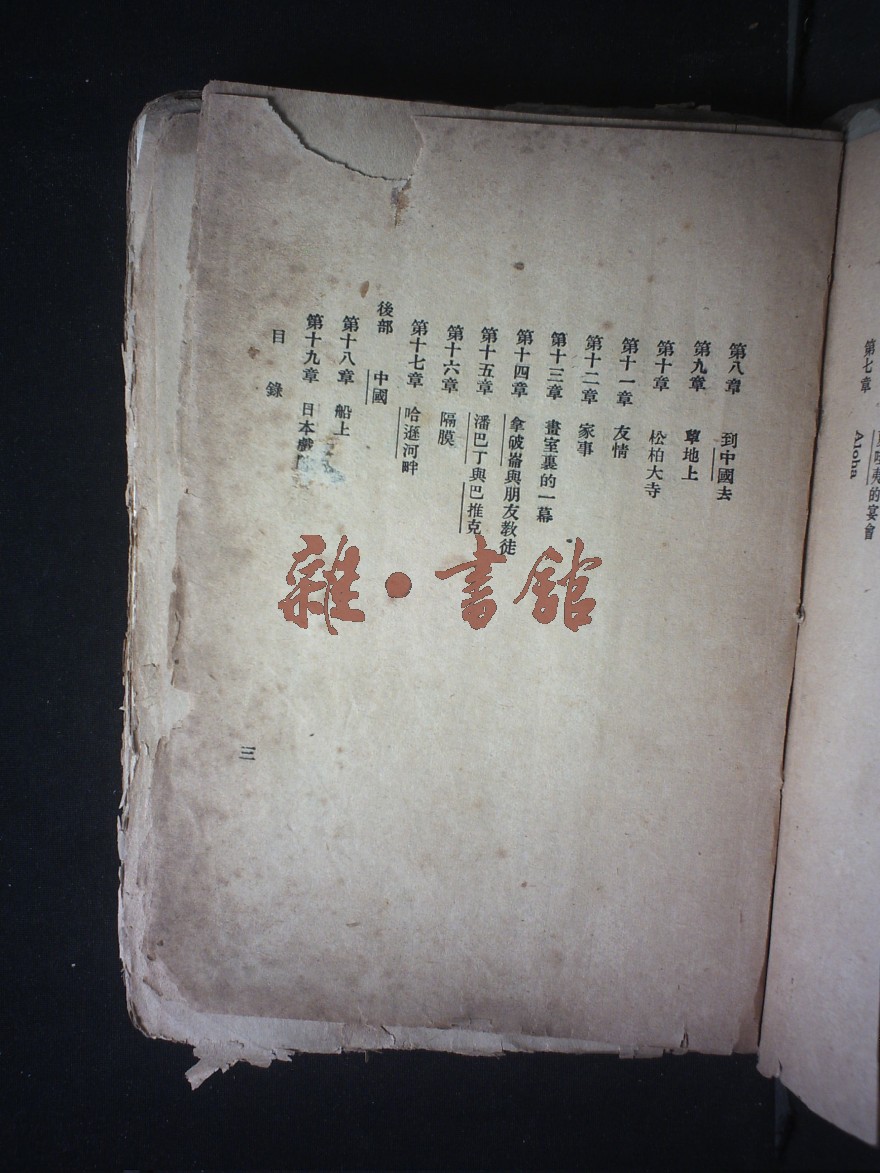 第七章
的宴會
Aloha
第八章 到中國去
第九章 草地上
第十章 松柏大寺
第十一章 友情
第十二章 家事
第十三章 畫室裏的一幕
第十四章 拿破崙與朋友教徒
第十五章 潘巴丁與巴推克
第十六章 隔膜
第十七章 哈遜河畔
後部 中國
第十八章 船上
第十九章 日本戲
目錄
三
雜·書館